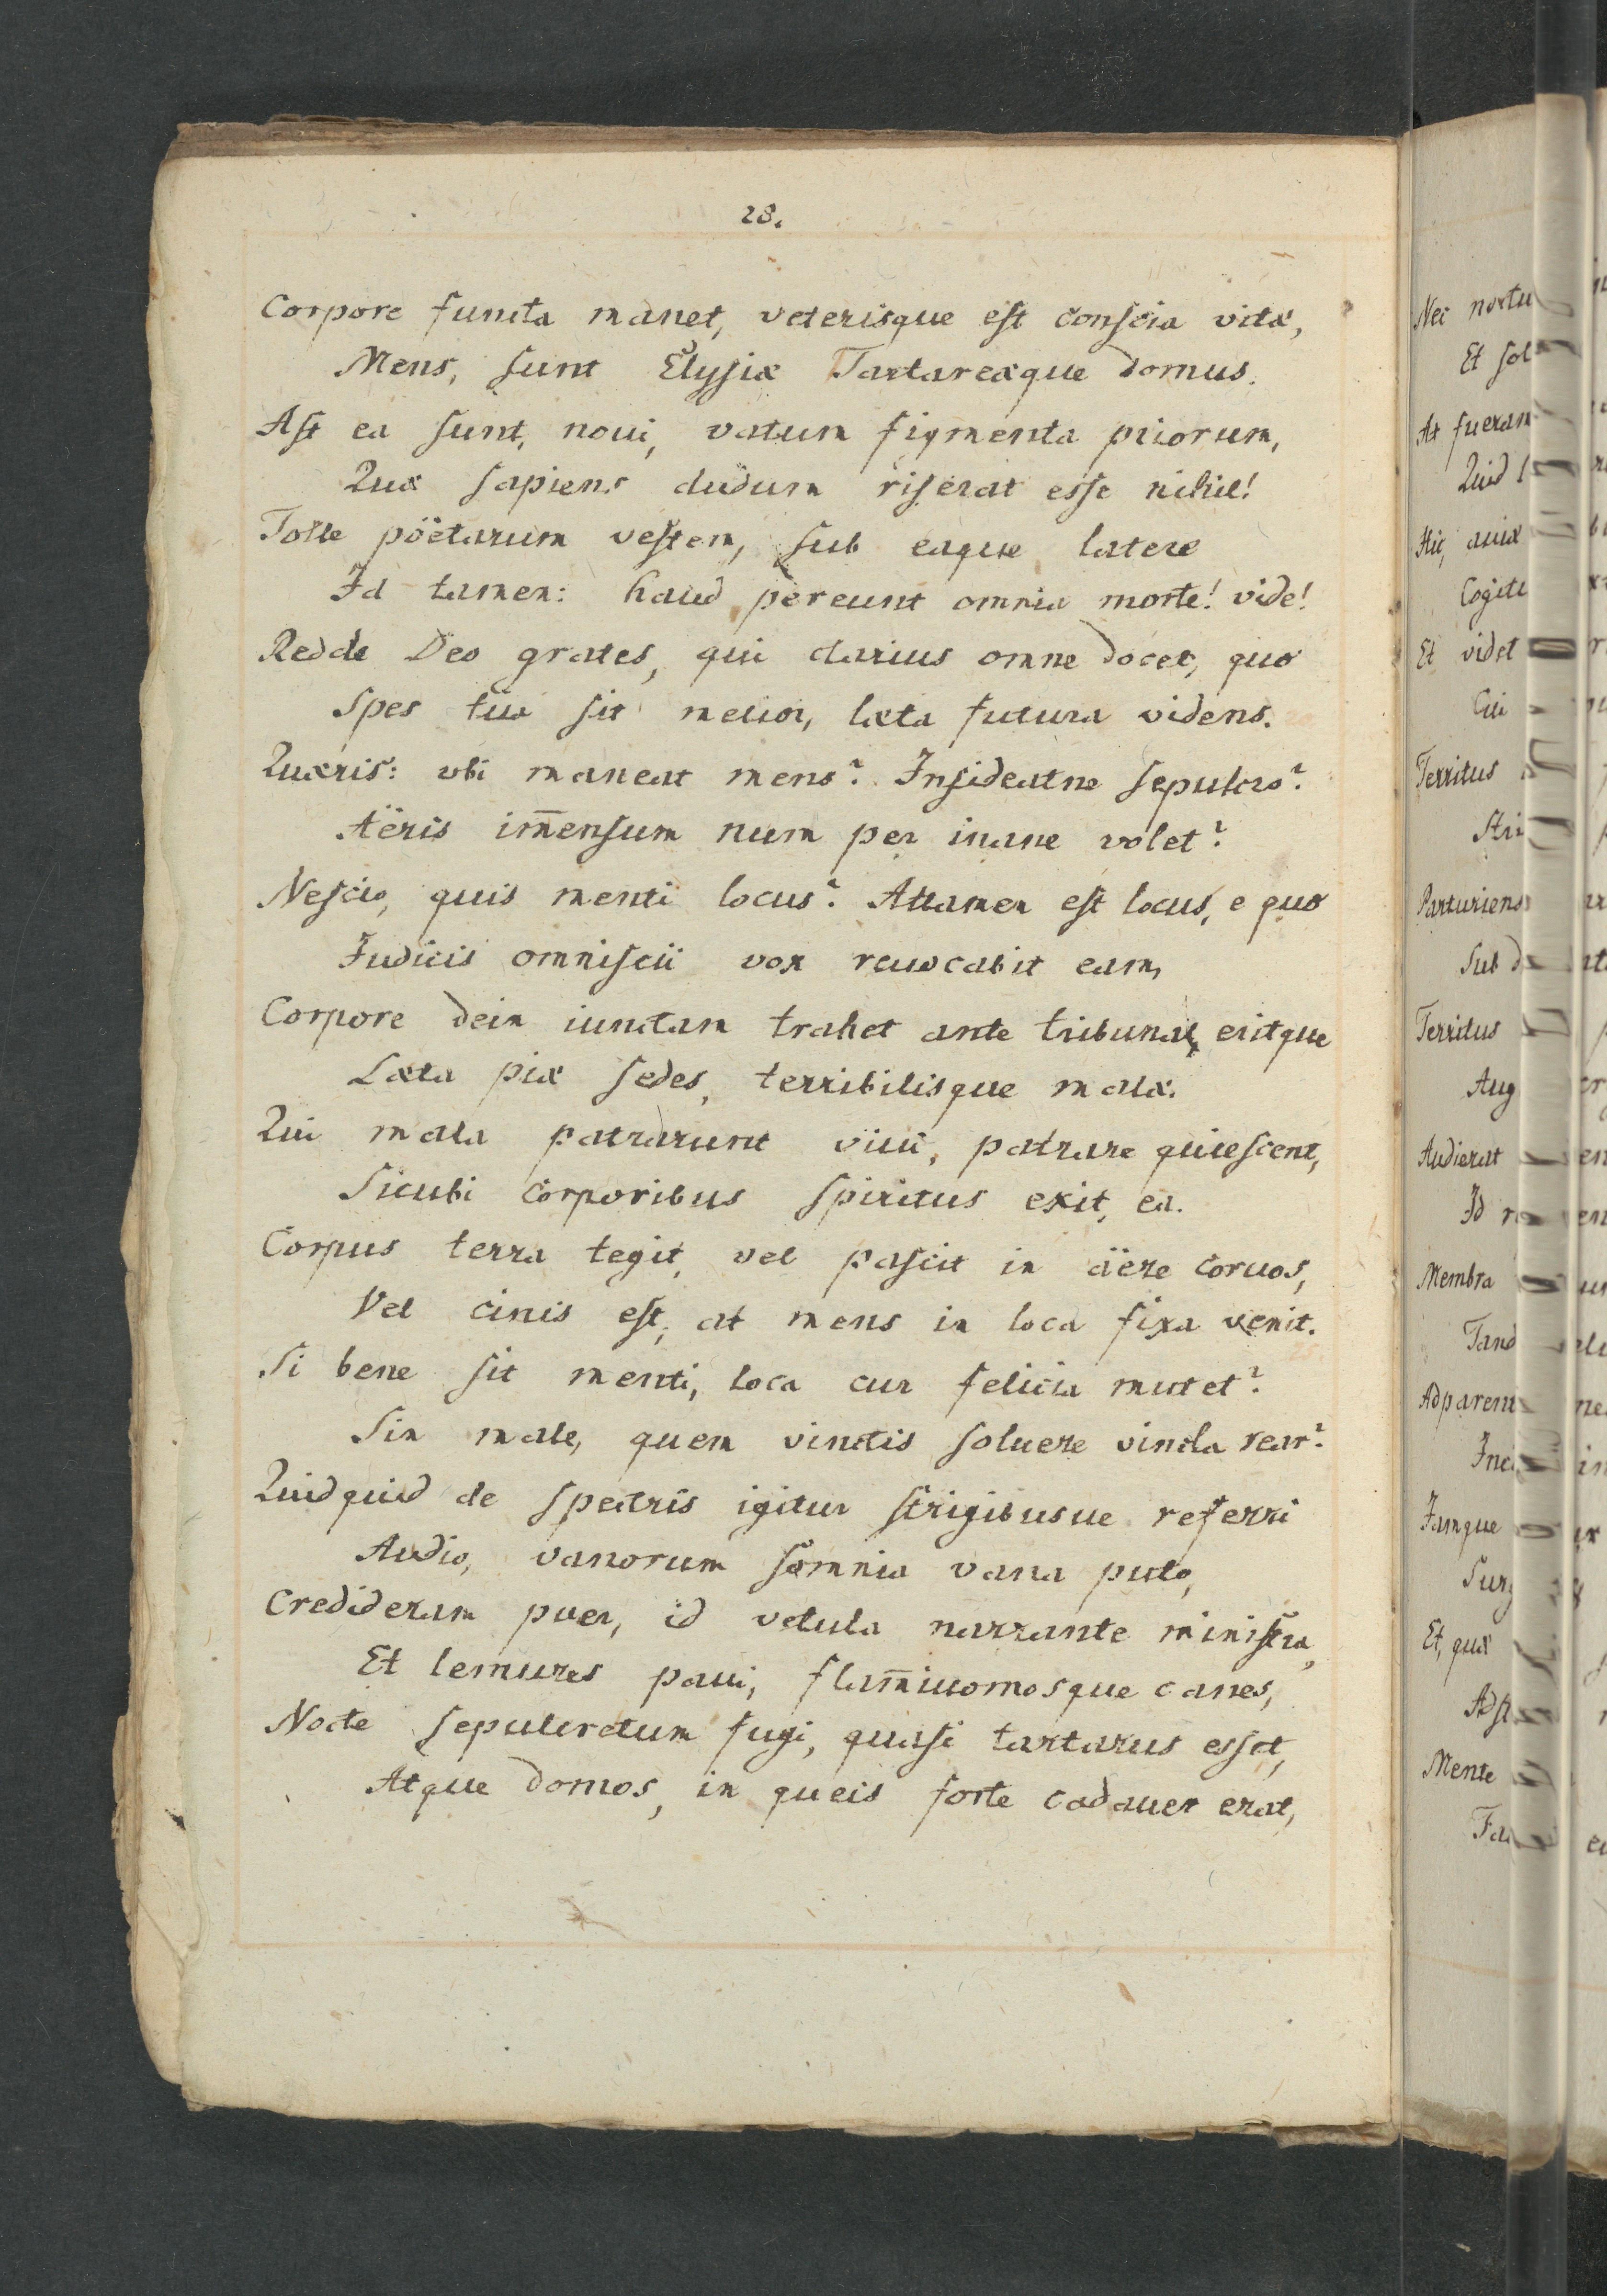 28.
Corpore functa manet, veterisque est conscia vitæ,
Mens, sunt Elysiæ Tartareæque domus.
Ast ea sunt, noui, vatum figmenta priorum,
Quæ sapiens dudum riserat esse nihil!
Tolle poëtarum vestem, sub eaque latere
Id tamen: haud pereunt omnia morte! vide!
Redde Deo grates, qui clarius omne docet, quo
Spes tua sit melior, læta futura videns.
Quæris: vbi maneat mens? Insideatne sepulcro?
Aëris im̄ensum num per inane volet?
Nescio, quis menti locus? Attamen est locus, e quo
Iudicis omniscii vox reuocabit eam,
Corpore dein iunctam trahet ante tribunal, eritque
Læta piæ sedes, terribilisque malæ.
Qui mala patrarunt viui, patrare quiescent,
Sicubi corporibus spiritus exit, ea.
Corpus terra tegit, vel pascit in äere coruos,
Vel cinis est, at mens in loca fixa venit.
Si bene sit menti, loca cur felicia mutet?
Sin male, quem vinctis soluere vincla rear?
Quidquid de spectris igitur strigibusue referri
Audio, vanorum somnia vana puto,
Credideram puer, id vetula narrante ministra,
Et lemures paui, flam̄iuomosque canes,
Nocte sepulcretum fugi, quasi tartarus esset,
Atque domos, in queis forte cadauer erat,
Nec
Et sol
At fueram
Quid
Hic, auiæ
Et videt
Territus
Parturiens
Sub
Territus
Aug
Audierat
Id
Membra
Tand
Adparent
Iamque
Et, quæ
Mente